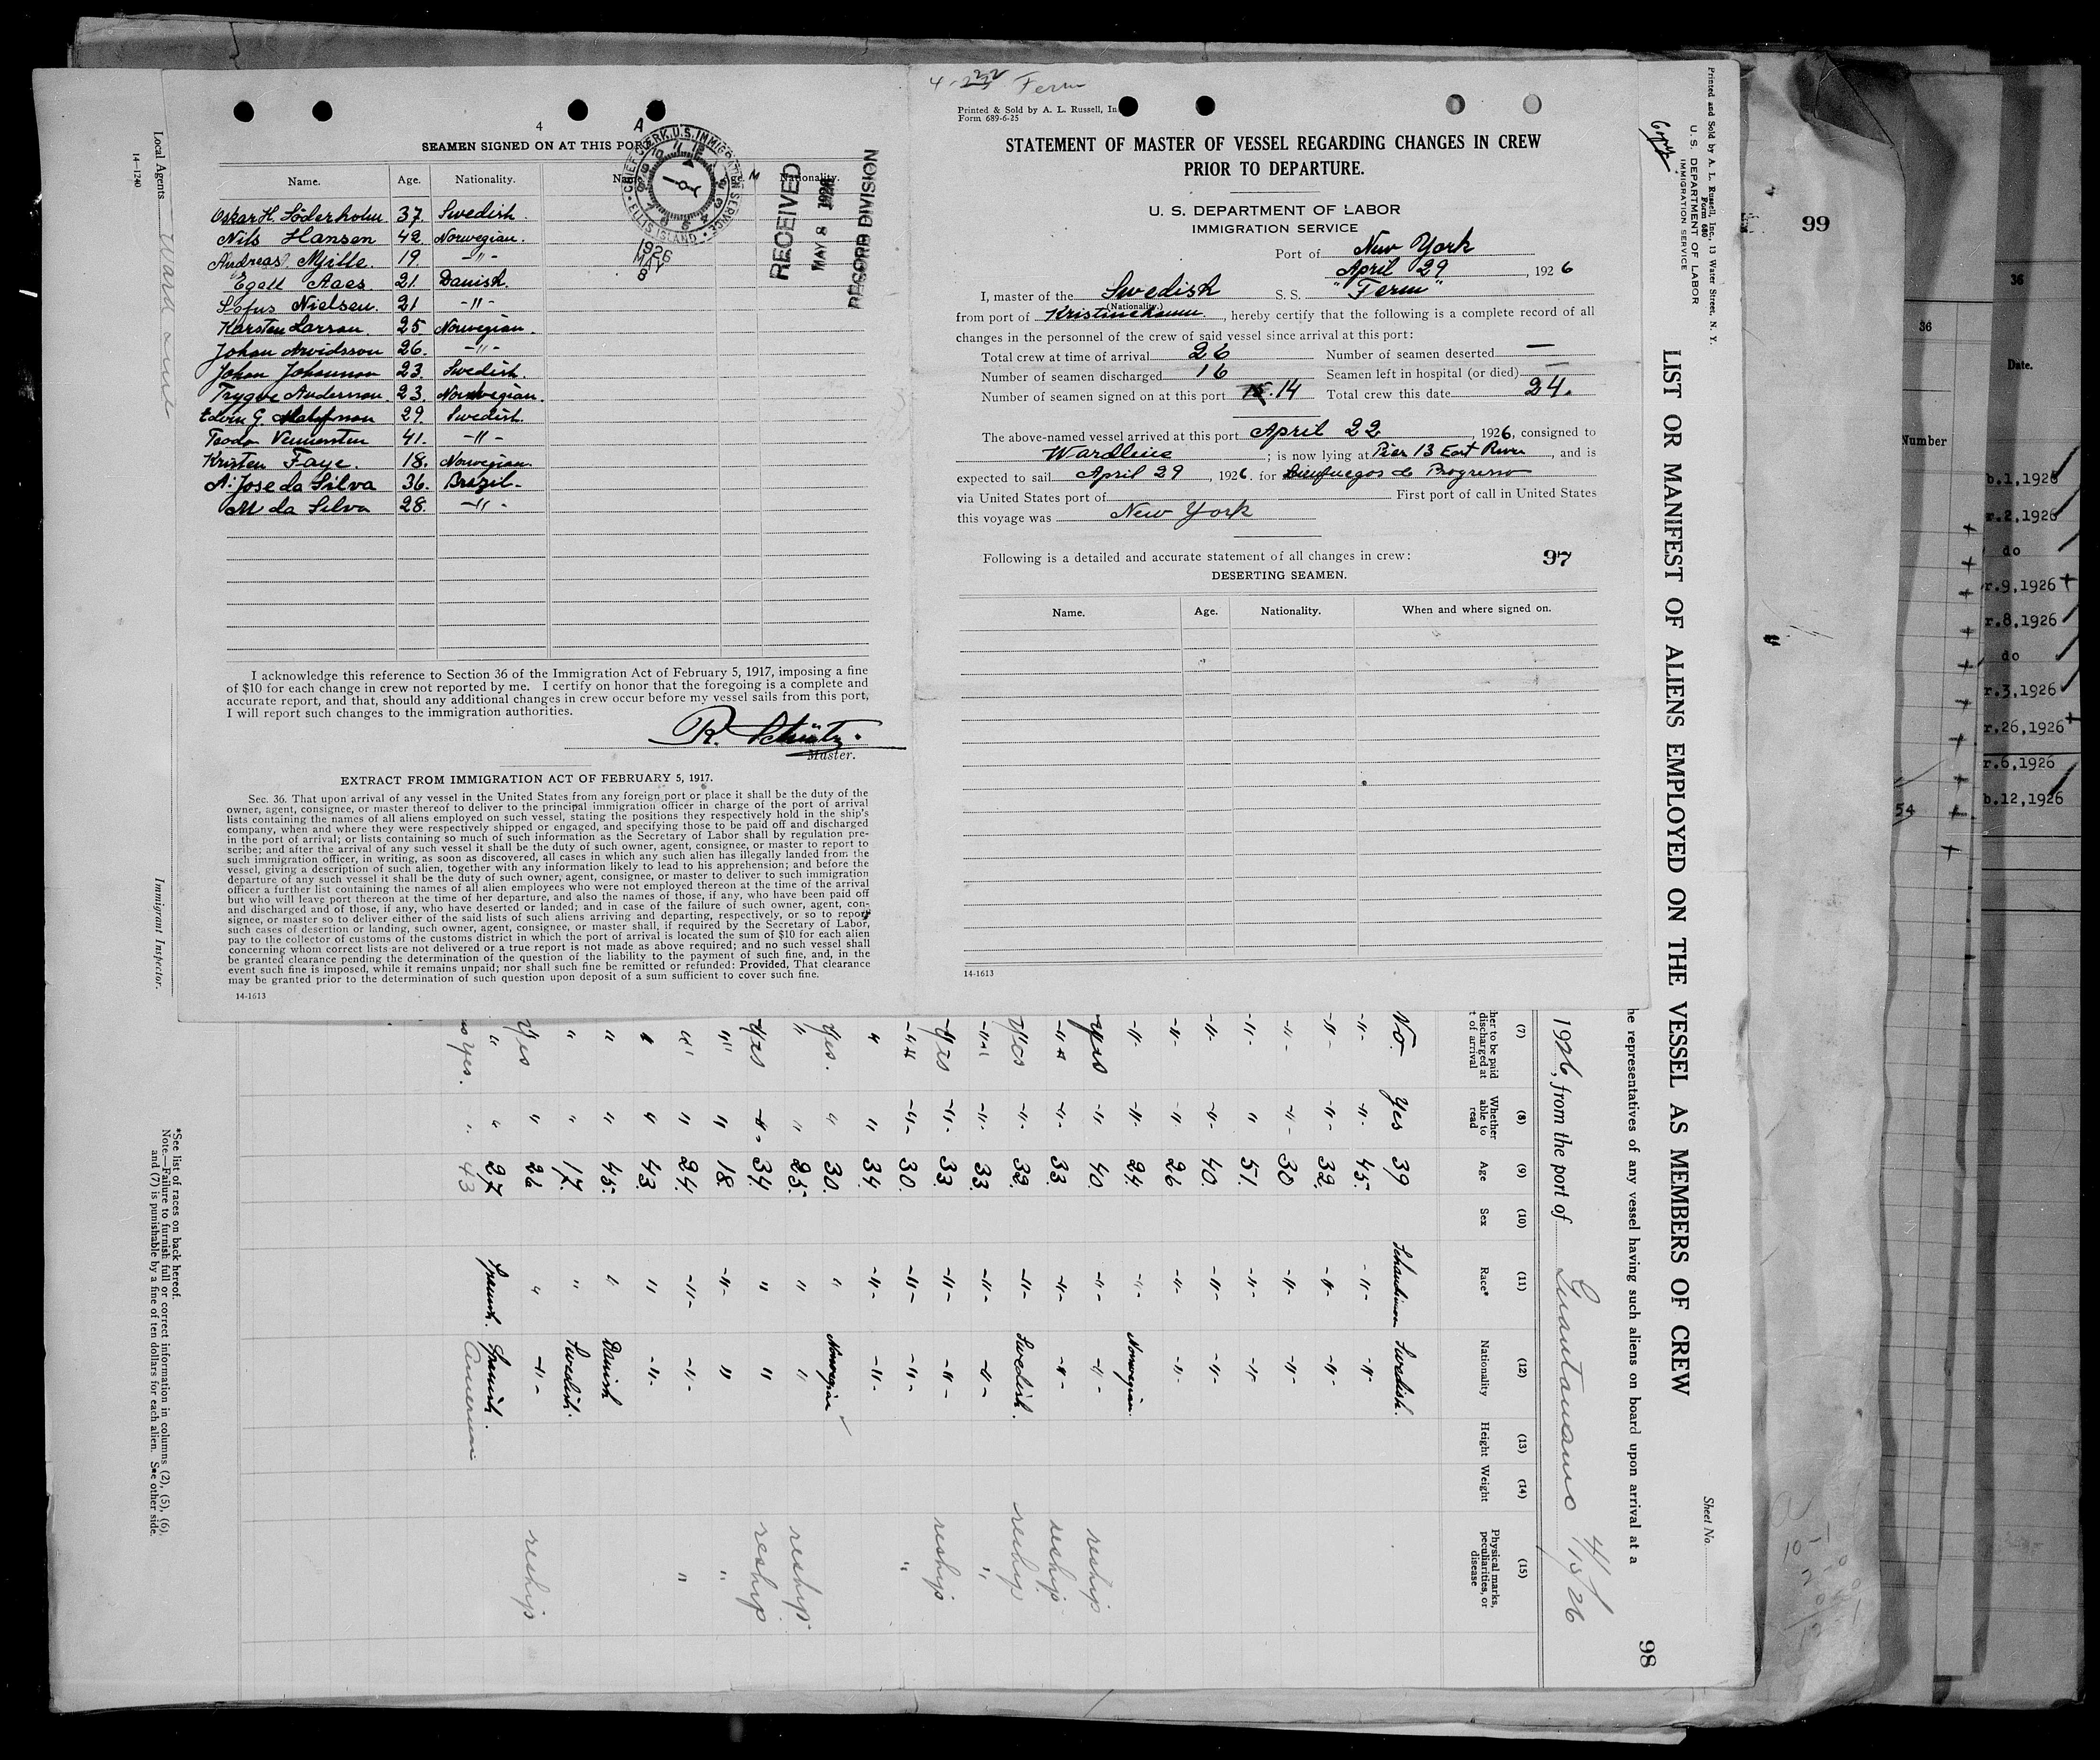 4
SEAMEN SIGNED ON AT THIS PORT
Name. Age. Nationality. Nationality.
Oskar H. Söderholm 37. Swedish.
Nils Hansen 42. Norwegian.
Andreas Mjille. 19 -"-
Egell Aaes 21. Danish.
Sofus Nielsen. 21 -"-
Karsten Larsen. 25 Norwegian.
Johan Arvidsson 26. -"-
Johan Johannson 23. Swedish.
Trygve Anderson. 23. Norwegian.
Edvin G. 29. Swedish.
41. -"-
Kristen Faye. 18. Norwegian.
A. Jose da Silva 36. Brazil-
M da Silva 28. -"-
CHIEF CLERK, U.S. IMMIGRATION SERVICE
ELLIS ISLAND
1926
MAY
8
RECEIVED
MAY 8 1926
RECORD DIVISION
I acknowledge this reference to Section 36 of the Immigration Act of February 5, 1917, imposing a fine
of $10 for each change in crew not reported by me. I certify on honor that the foregoing is a complete and
accurate report, and that, should any additional changes in crew occur before my vessel sails from this port,
I will report such changes to the immigration authorities.
R. Schütz.
Master.
EXTRACT FROM IMMIGRATION ACT OF FEBRUARY 5, 1917.
Sec. 36. That upon arrival of any vessel in the United States from any foreign port or place it shall be the duty of the
owner, agent, consignee, or master thereof to deliver to the principal immigration officer in charge of the port of arrival
lists containing the names of all aliens employed on such vessel, stating the positions they respectively hold in the ship's
company, when and where they were respectively shipped or engaged, and specifying those to be paid off and discharged
in the port of arrival; or lists containing so much of such information as the Secretary of Labor shall by regulation pre-
scribe; and after the arrival of any such vessel it shall be the duty of such owner, agent, consignee, or master to report to
such immigration officer, in writing, as soon as discovered, all cases in which any such alien has illegally landed from the
vessel, giving a description of such alien, together with any information likely to lead to his apprehension; and before the
departure of any such vessel it shall be the duty of such owner, agent, consignee, or master to deliver to such immigration
officer a further list containing the names of all alien employees who were not employed thereon at the time of the arrival
but who will leave port thereon at the time of her departure, and also the names of those, if any, who have been paid off
and discharged and of those, if any, who have deserted or landed; and in case of the failure of such owner, agent, con-
signee, or master so to deliver either of the said lists of such aliens arriving and departing, respectively, or so to report
such cases of desertion or landing, such owner, agent, consignee, or master shall, if required by the Secretary of Labor,
pay to the collector of customs of the customs district in which the port of arrival is located the sum of $10 for each alien
concerning whom correct lists are not delivered or a true report is not made as above required; and no such vessel shall
be granted clearance pending the determination of the question of the liability to the payment of such fine, and, in the
event such fine is imposed, while it remains unpaid; nor shall such fine be remitted or refunded: Provided, That clearance
may be granted prior to the determination of such question upon deposit of a sum sufficient to cover such fine.
14-1613
Ferm
Printed & Sold by A. L. Russell, In
Form 689-6-25
STATEMENT OF MASTER OF VESSEL REGARDING CHANGES IN CREW
PRIOR TO DEPARTURE.
U. S. DEPARTMENT OF LABOR
IMMIGRATION SERVICE
Port of New York
April 29, 1926
I, master of the Swedish S. S. "Ferm"
(Nationality.)
from port of Kristinehamn, hereby certify that the following is a complete record of all
changes in the personnel of the crew of said vessel since arrival at this port:
Total crew at time of arrival 26 Number of seamen deserted —
Number of seamen discharged 16 Seamen left in hospital (or died) —
Number of seamen signed on at this port 14 Total crew this date 24.
The above-named vessel arrived at this port April 22, 1926, consigned to
Wardline; is now lying at Pier 13 East River, and is
expected to sail April 29, 1926. for Cienfuegos de Progresso
via United States port of First port of call in United States
this voyage was New York
Following is a detailed and accurate statement of all changes in crew: 97
DESERTING SEAMEN.
Name. Age. Nationality. When and where signed on.
14-1613
Printed and Sold by A. L. Russell, Inc., 13 Water Street, N. Y.
Form 680
U. S. DEPARTMENT OF LABOR
IMMIGRATION SERVICE
Copy
LIST OR MANIFEST OF ALIENS EMPLOYED ON THE VESSEL AS MEMBERS OF CREW
Sheet No.
98
he representatives of any vessel having such aliens on board upon arrival at a
1926, from the port of Guantanamo 4/15/26
(7) (8) (9) (10) (11) (12) (13) (14) (15)
her to be paid discharged at t of arrival
Whether able to read
Age
Sex
Race*
Nationality
Height
Weight
Physical marks, peculiarities, or disease
No. Yes 39 Swedish.
-"- -"- 45. -"- -"-
-"- -"- 32. -"- -"-
-"- -"- 30 -"- -"-
-"- " 51. -"- -"-
-"- -"- 40. -"- -"-
-"- " 26 -"- -"-
-"- -"- 24. -"- Norwegian.
Yes -"- 40. -"- -"- reship
-"- -"- 33. -"- -"- reship
Yes -"- 32. -"- Swedish. reship
-"- -"- 33. -"- -"- "
Yes -"- 33. -"- -"- reship
-"- -"- 30. -"- -"- "
" " 34. -"- -"-
Yes. " 30. " Norwegian
" " 25. " " reship
Yes -"- 34. " " reship
" " 18. -"- " "
" " 24. -"- -"- "
" " 43. " -"-
" " 45. " Danish
" " 17. " Swedish.
Yes " 26 " -"- reship
" " 27 Spanish. Spanish.
Yes. " 43 American
Local Agents Ward Line
14-1240
Immigrant Inspector.
*See list of races on back hereof.
Note.—Failure to furnish full or correct information in columns (2), (5), (6),
and (7) is punishable by a fine of ten dollars for each alien. See other side.
99
36
36
Date.
Number
b.1,1926
r.2,1926
do
r.9,1926
r.8,1926
do
r.3,1926
r.26,1926
r.6,1926
b.12,1926
54